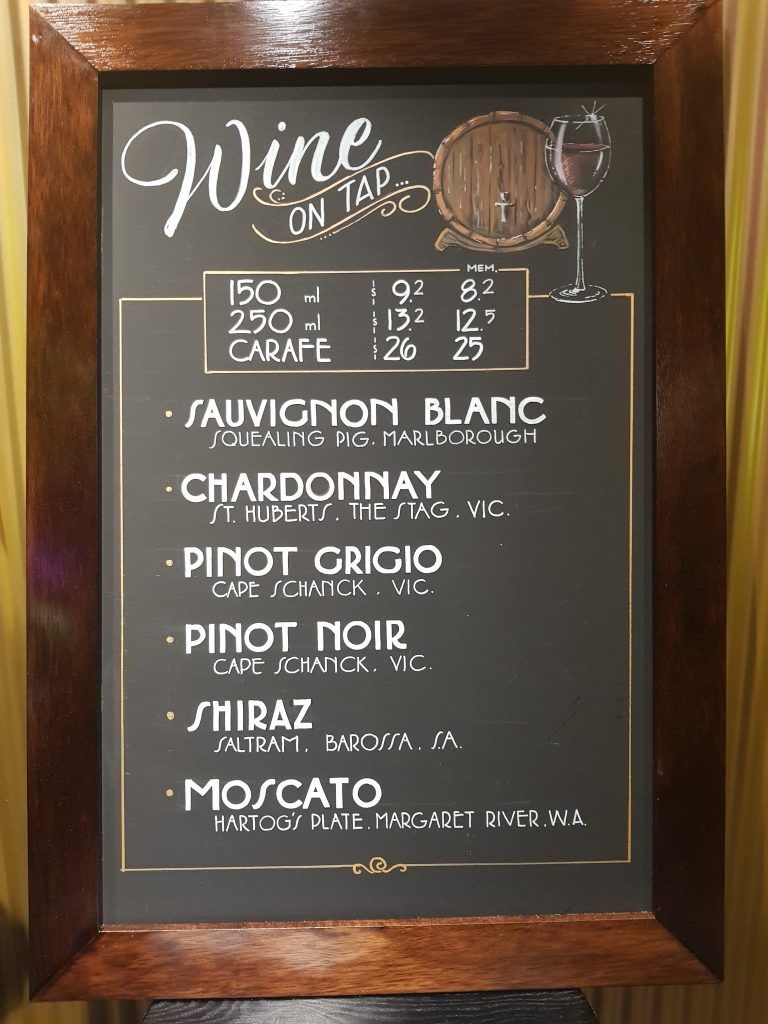 Wine
ON TAP...
MEM.
150 ml 9.2 8.2
250 ml 13.2 12.5
CARAFE 26 25
· SAUVIGNON BLANC
SQUEALING PIG. MARLBOROUGH
· CHARDONNAY
ST. HUBERTS. THE STAG. VIC.
· PINOT GRIGIO
CAPE SCHANCK. VIC.
· PINOT NOIR
CAPE SCHANCK. VIC.
· SHIRAZ
SALTRAM. BAROSSA. S.A.
· MOSCATO
HARTOG'S PLATE. MARGARET RIVER. W.A.